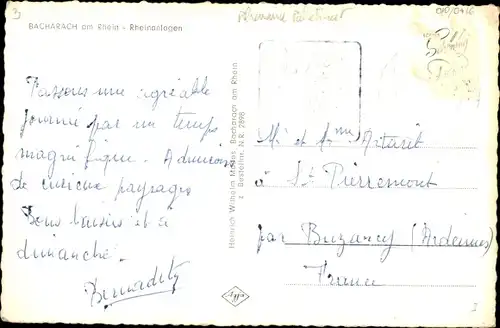 3
BACHARACH am Rhein - Rheinanlagen
Passons une agréable
journée par un temps
magnifique. Admirons
de curieux paysages
Bons baisers et à
dimanche.
Bernadette
Heinrich Wilhelm Bacharach am Rhein
Bestellnr. N.R. 2898
Agfa
Mr et Mme
à St Pierremont
par Buzancy (Ardennes)
France